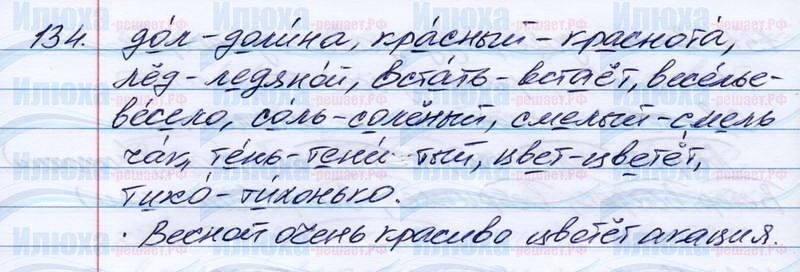 134. до́л - доли́на, кра́сный - краснота́,
лёд - ледяно́й, вста́ть - встаёт, весе́лье -
ве́село, со́ль - солёный, сме́лый - смель
ча́к, те́нь - тени́ тый, цвет - цветёт,
тихо́ - ти́хонько.
· Весной очень красиво цветёт акация.